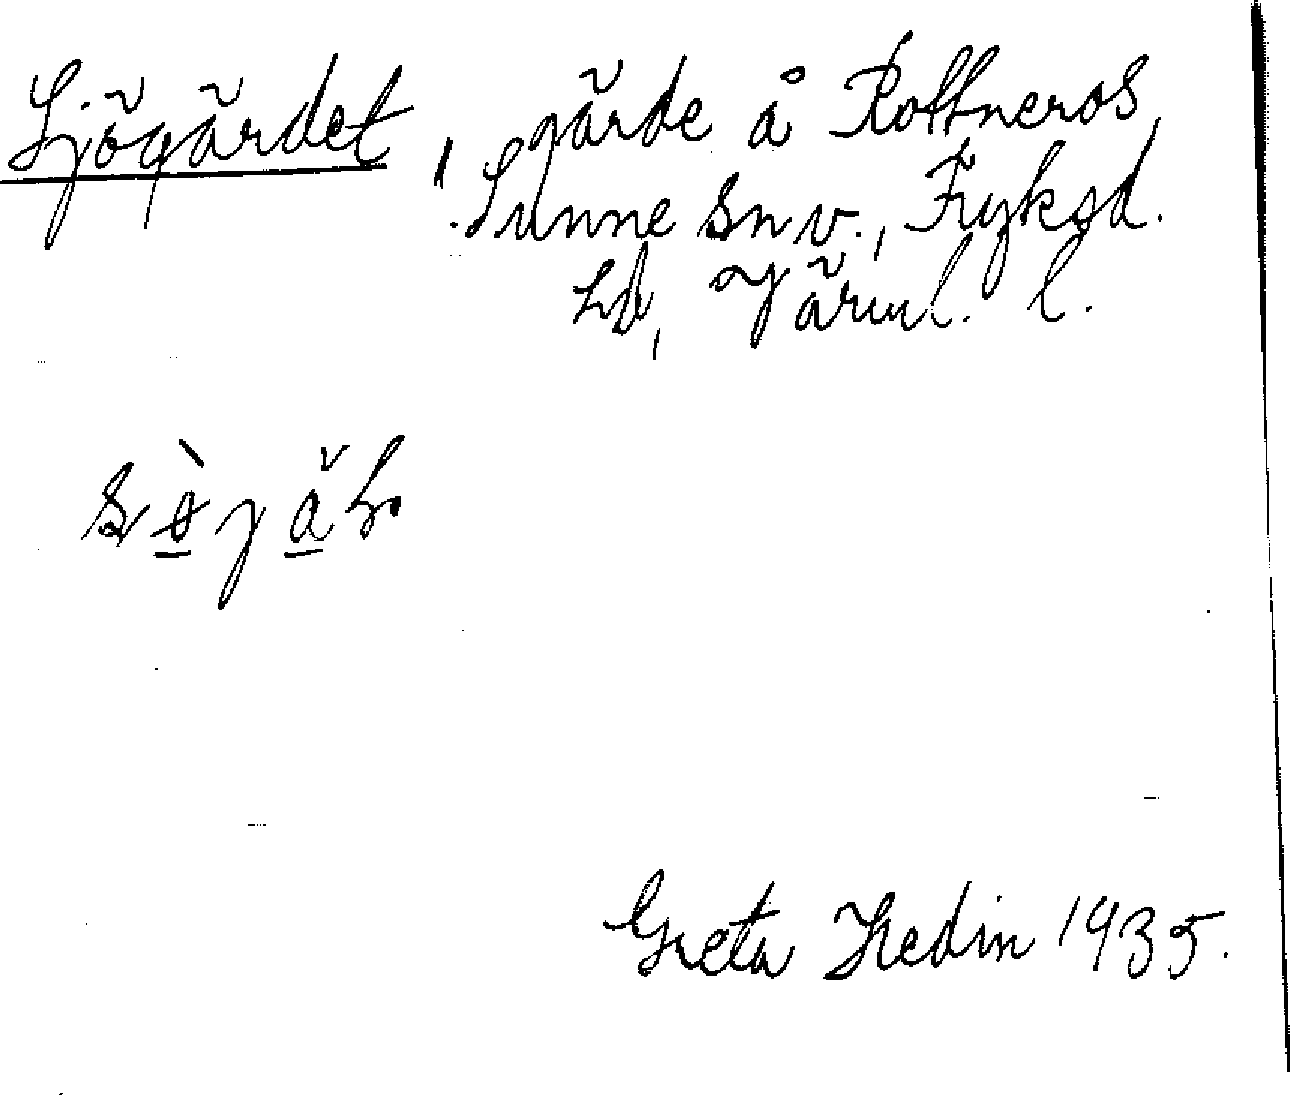 Sjögärdet, gärde å Rottneros,
Sunne sn v., Fryksd.
hd, Värml. l.
Greta Hedin 1935.